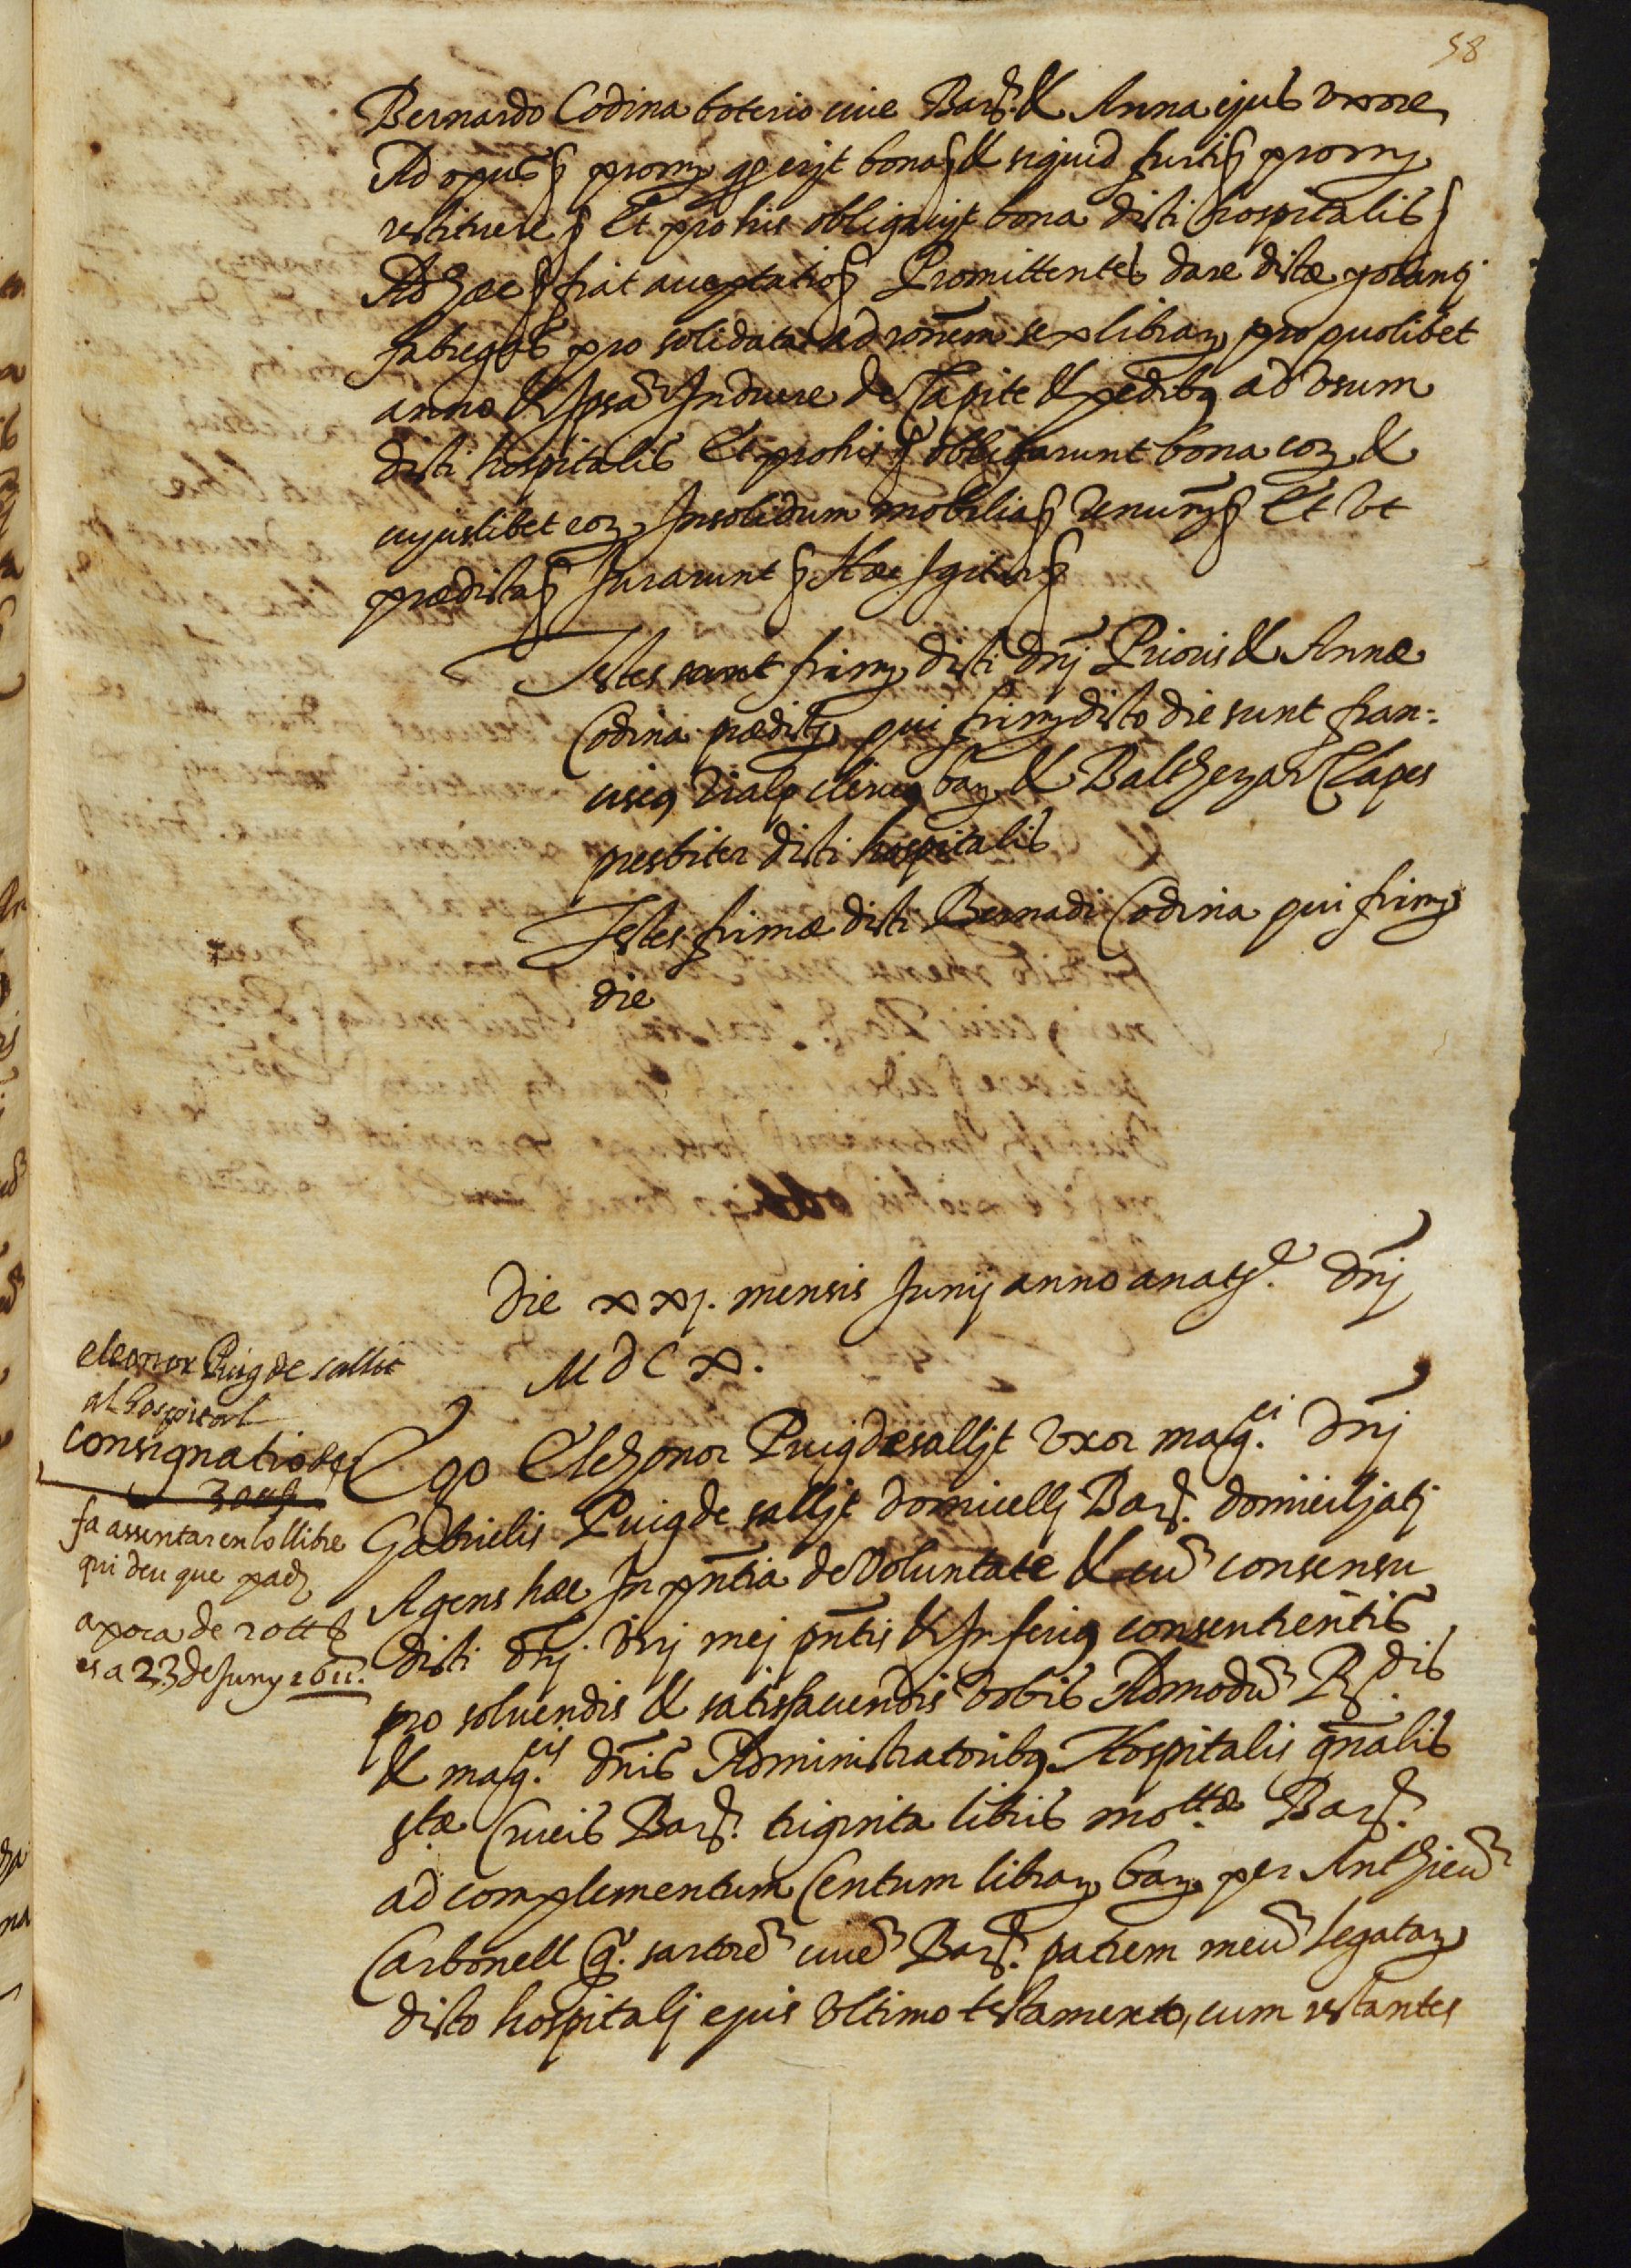 58
Bernardo Codina boterio cive Barñ. & Anna ejus uxore
Ad opus § promꝫ qꝫ erijt bona § & siquid furti § promꝫ
restituere § Et pro his obligavijt bona dicti hospitalis §
Ad hæc § fiat acceptatio § Promittentes dare dictæ
fabregas pro solidata ad rõnem sex librarꝫ pro quolibet
anno & Ipsã Induere de Capite & pedibꝫ ad Usum
dicti hospitalis Et pro his § obligarunt bona eoꝝ &
cujuslibet eoꝝ Insolidum mobilia § renunꝫ § Et Ut
prædicta § Jurarunt § Hæc Igitur §
Testes sunt firmꝫ dicti Dñj Prioris & Annæ
Codina prædictꝫ qui firmꝫ dicto die sunt fran=
ciscꝫ Vialp clericꝫ barꝫ & Balthezar Clapes
presbiter dicti hospitalis
Testes firmæ dicti Bernadi Codina qui firmꝫ
die
Die xxj. mensis Junij anno a natẽ. Dñj
MDCx.
eleonor Puig de sallit
al hospital
Consignatio de
30 ll §
fa assentar en lo llibre
qui deu que pad
apoca de 20 ll §
es a 23 de Juny 1611.
Ego Elehonor Puigdesalljt Uxor magci. Dñj
Gabrielis Puig de salljt Domicellj Barñ. domiciljatj
Agens hæc In pñtia de Voluntate & cũ consensu
dicti dñj. Virj mej pñtis & Inferiꝫ consentientis
pro solvendis & satisfaciendis Vobis Admodũ Rdis
& magcis. dñis Administratoribꝫ Hospitalis gñalis
stæ Crucis Barñ. triginta libris mottæ Barñ.
ad complementum Centum librarꝫ barꝫ per Anthicũ
Carbonell q̃. sartorẽ civẽ Barñ. patrem meũ legatarꝫ
dicto hospitalj ejus Ultimo testamento, cum restantes